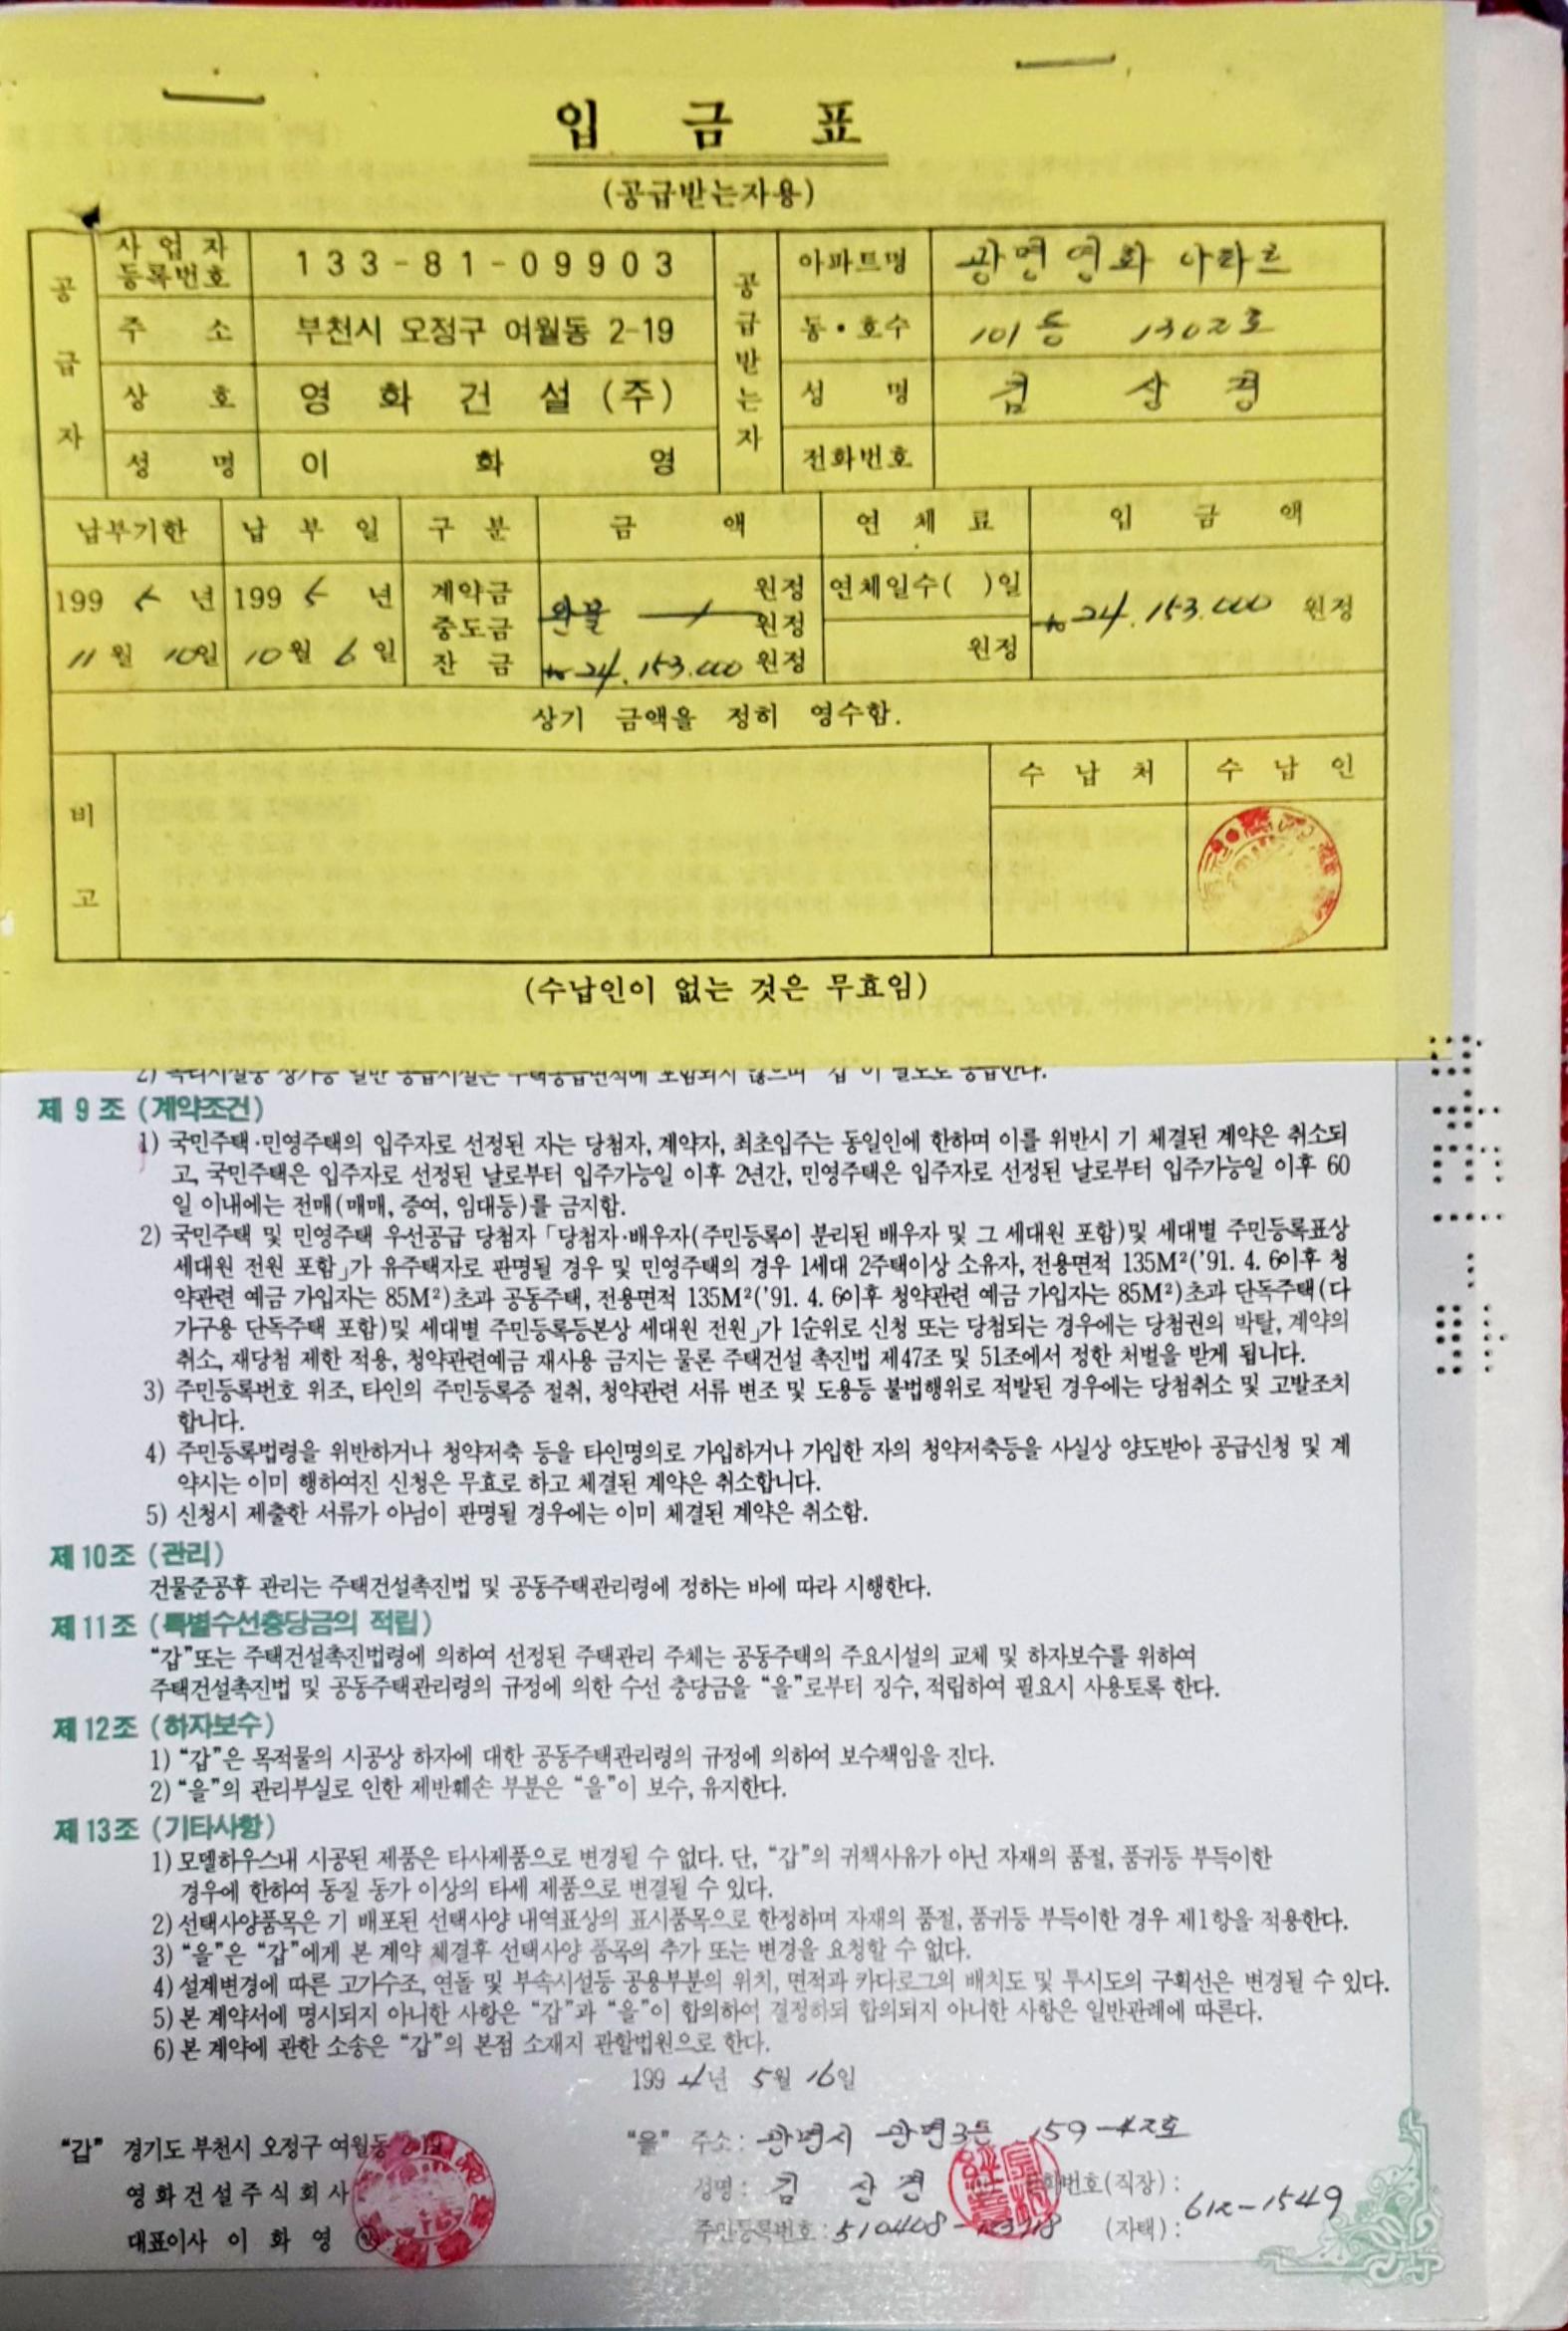 입 금 표
(공급받는자용)
공급자
사업자등록번호 133-81-09903
주 소 부천시 오정구 여월동 2-19
상 호 영 화 건 설 (주)
성 명 이 화 영
공급받는자
아파트명 광명영화 아파트
동·호수 101동 1302호
성 명 김 상 경
전화번호
납부기한 납 부 일 구 분 금 액 연 체 료 입 금 액
1995년 11월 10일
1995년 10월 6일
계약금 원정
중도금 원정
잔 금 ₩24,153,000 원정
연체일수( )일
원정
₩24,153,000 원정
상기 금액을 정히 영수함.
비고
수 납 처 수 납 인
(수납인이 없는 것은 무효임)
2) 복리시설중 상가등 일반 공급시설은 주택공급면적에 포함되지 않으며 “갑”이 별도로 공급한다.
제 9 조 (계약조건)
1) 국민주택·민영주택의 입주자로 선정된 자는 당첨자, 계약자, 최초입주는 동일인에 한하며 이를 위반시 기 체결된 계약은 취소되
고, 국민주택은 입주자로 선정된 날로부터 입주가능일 이후 2년간, 민영주택은 입주자로 선정된 날로부터 입주가능일 이후 60
일 이내에는 전매(매매, 증여, 임대등)를 금지함.
2) 국민주택 및 민영주택 우선공급 당첨자 「당첨자·배우자(주민등록이 분리된 배우자 및 그 세대원 포함)및 세대별 주민등록표상
세대원 전원 포함」가 유주택자로 판명될 경우 및 민영주택의 경우 1세대 2주택이상 소유자, 전용면적 135M²('91. 4. 6이후 청
약관련 예금 가입자는 85M²)초과 공동주택, 전용면적 135M²('91. 4. 6이후 청약관련 예금 가입자는 85M²)초과 단독주택(다
가구용 단독주택 포함)및 세대별 주민등록등본상 세대원 전원」가 1순위로 신청 또는 당첨되는 경우에는 당첨권의 박탈, 계약의
취소, 재당첨 제한 적용, 청약관련예금 재사용 금지는 물론 주택건설 촉진법 제47조 및 51조에서 정한 처벌을 받게 됩니다.
3) 주민등록번호 위조, 타인의 주민등록증 절취, 청약관련 서류 변조 및 도용등 불법행위로 적발된 경우에는 당첨취소 및 고발조치
합니다.
4) 주민등록법령을 위반하거나 청약저축 등을 타인명의로 가입하거나 가입한 자의 청약저축등을 사실상 양도받아 공급신청 및 계
약시는 이미 행하여진 신청은 무효로 하고 체결된 계약은 취소합니다.
5) 신청시 제출한 서류가 아님이 판명될 경우에는 이미 체결된 계약은 취소함.
제 10조 (관리)
건물준공후 관리는 주택건설촉진법 및 공동주택관리령에 정하는 바에 따라 시행한다.
제 11조 (특별수선충당금의 적립)
“갑”또는 주택건설촉진법령에 의하여 선정된 주택관리 주체는 공동주택의 주요시설의 교체 및 하자보수를 위하여
주택건설촉진법 및 공동주택관리령의 규정에 의한 수선 충당금을 “을”로부터 징수, 적립하여 필요시 사용토록 한다.
제 12조 (하자보수)
1) “갑”은 목적물의 시공상 하자에 대한 공동주택관리령의 규정에 의하여 보수책임을 진다.
2) “을”의 관리부실로 인한 제반훼손 부분은 “을”이 보수, 유지한다.
제 13조 (기타사항)
1) 모델하우스내 시공된 제품은 타사제품으로 변경될 수 없다. 단, “갑”의 귀책사유가 아닌 자재의 품절, 품귀등 부득이한
경우에 한하여 동질 동가 이상의 타세 제품으로 변결될 수 있다.
2) 선택사양품목은 기 배포된 선택사양 내역표상의 표시품목으로 한정하며 자재의 품절, 품귀등 부득이한 경우 제1항을 적용한다.
3) “을”은 “갑”에게 본 계약 체결후 선택사양 품목의 추가 또는 변경을 요청할 수 없다.
4) 설계변경에 따른 고가수조, 연돌 및 부속시설등 공용부분의 위치, 면적과 카다로그의 배치도 및 투시도의 구획선은 변경될 수 있다.
5) 본 계약서에 명시되지 아니한 사항은 “갑”과 “을”이 합의하여 결정하되 합의되지 아니한 사항은 일반관례에 따른다.
6) 본 계약에 관한 소송은 “갑”의 본점 소재지 관할법원으로 한다.
1994년 5월 16일
“갑” 경기도 부천시 오정구 여월동 2-19
영 화 건 설 주 식 회 사
대표이사 이 화 영
“을” 주소 : 광명시 광명3동 159-42호
성명 : 김 상 경 전화번호(직장) :
주민등록번호 : 510408- (자택) : 612-1549